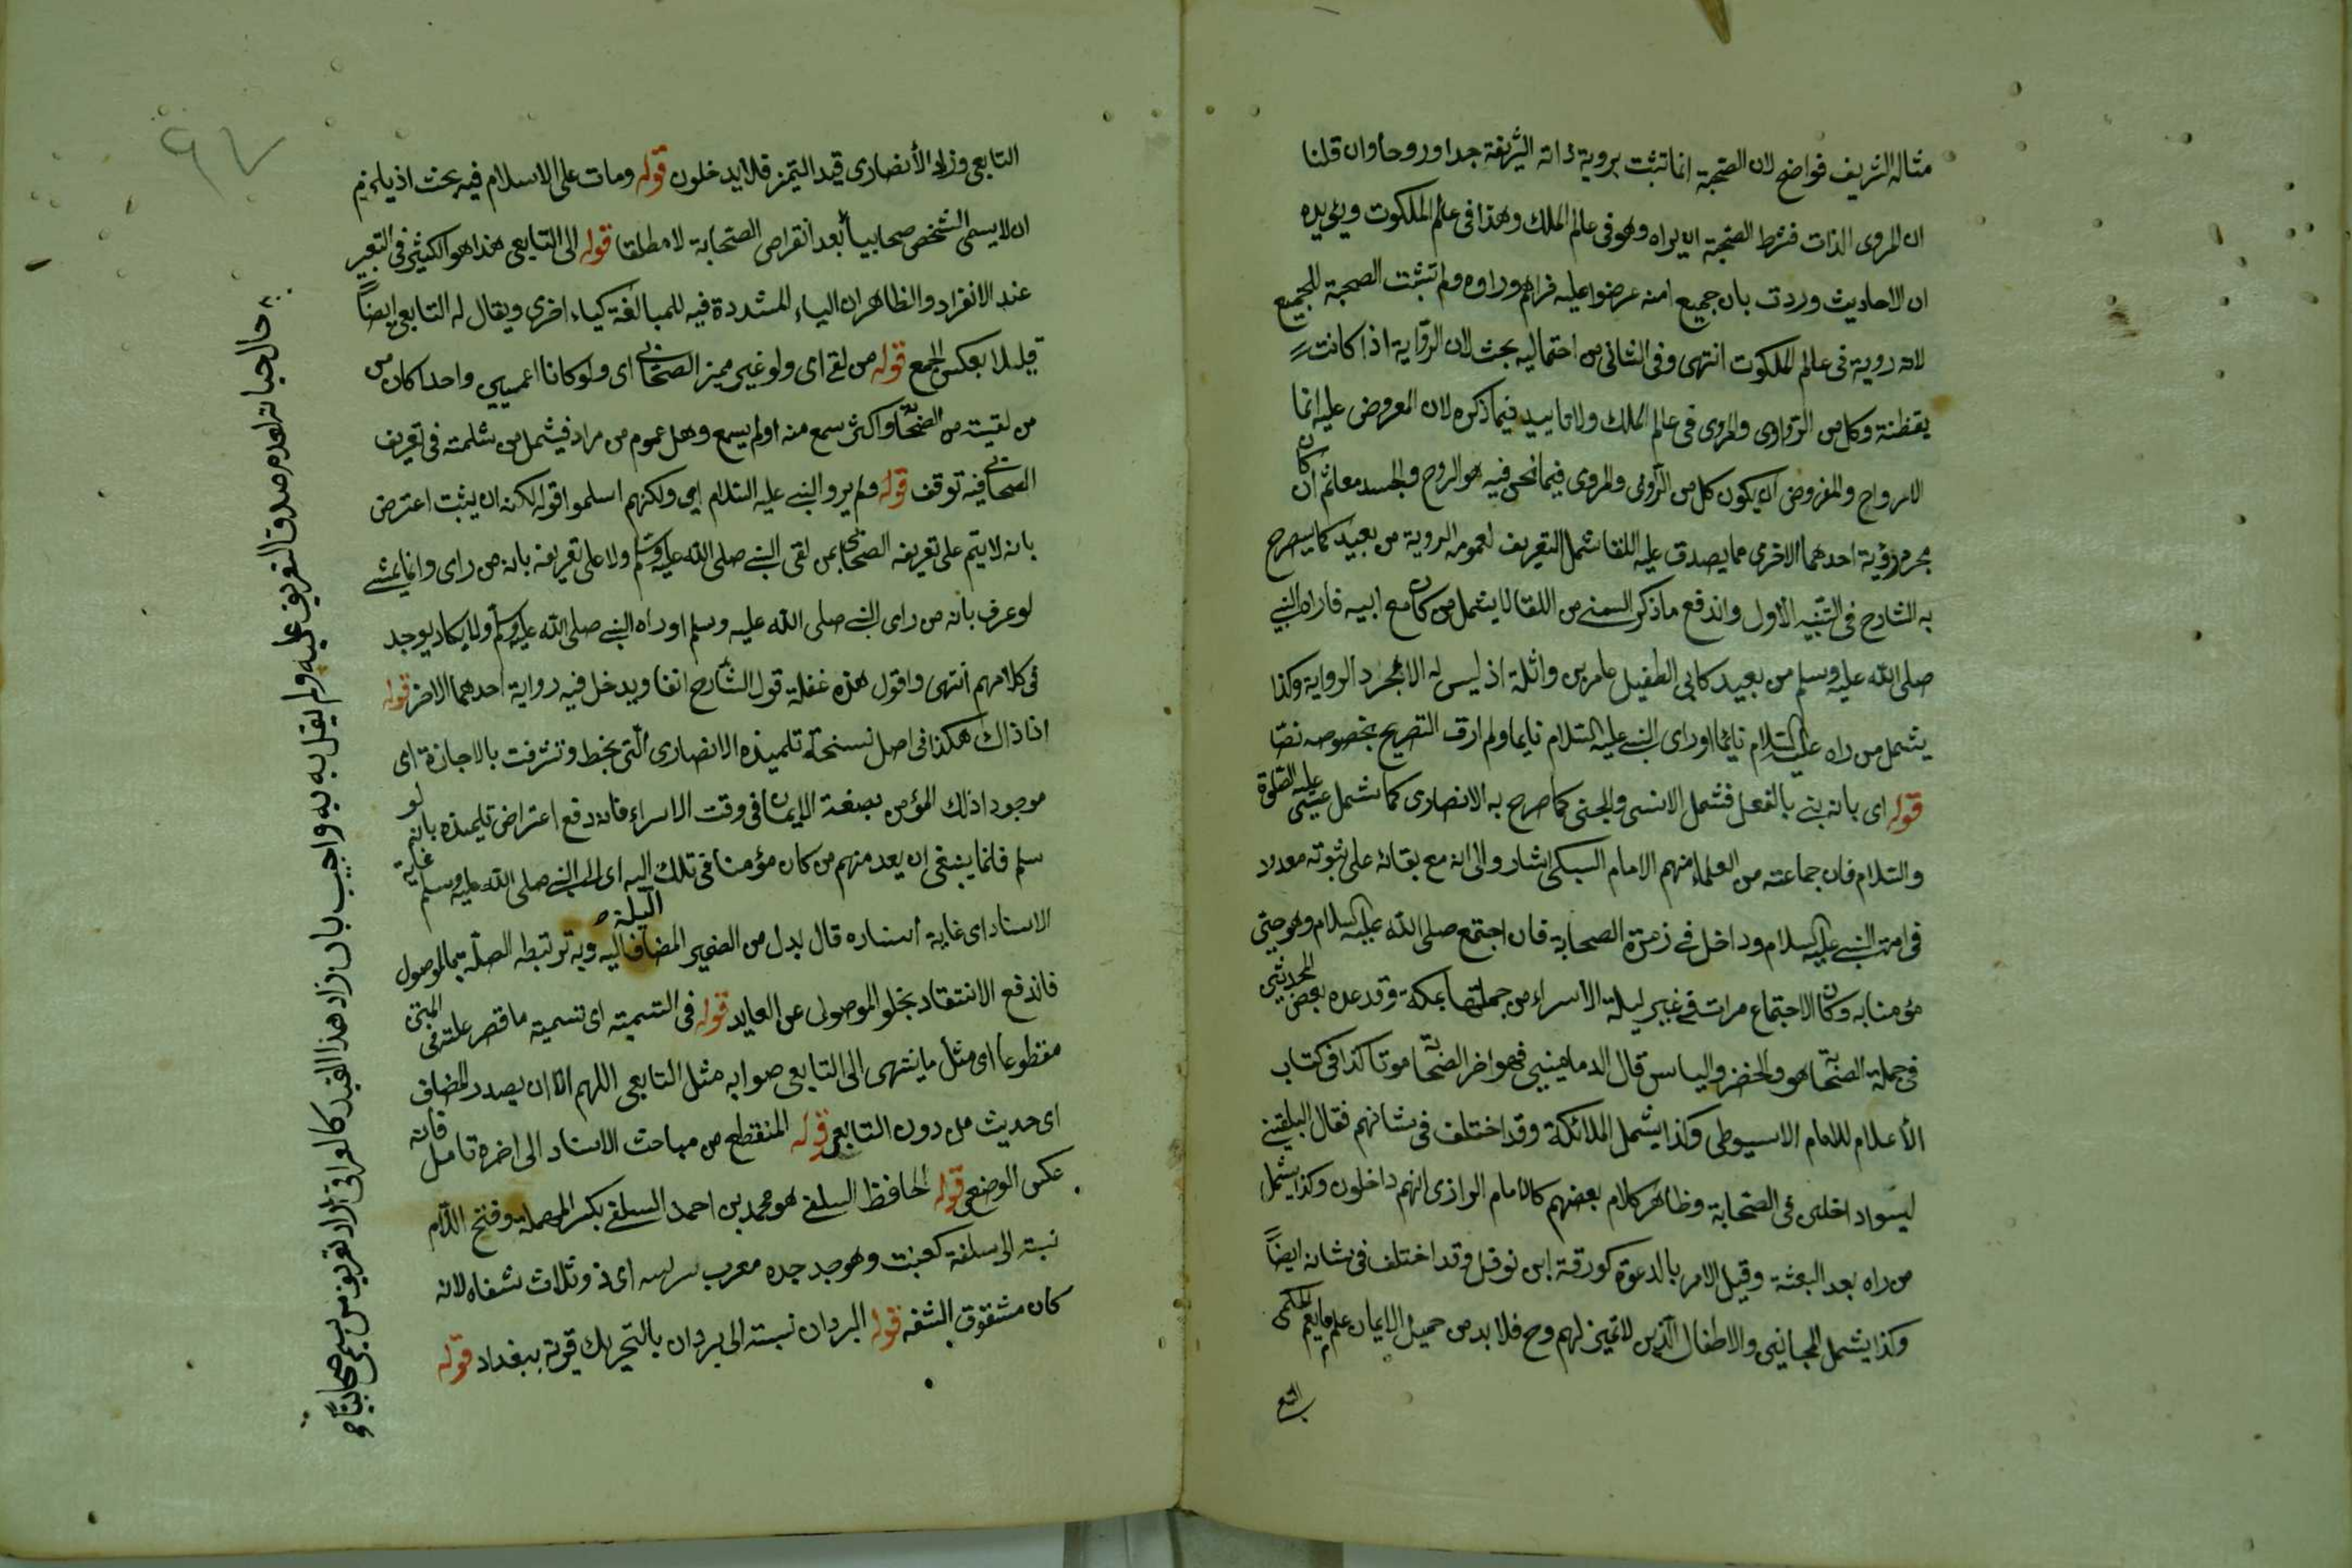 مثاله الشريف فواضح لان الصحبة انما تثبت بروية ذاته الشريفة جدا وروحا وان قلنا
ان المروى الذات فشرط الصحبة ان يراه وهو فى عالم الملك وهذا فى عالم الملكوت ويؤيده
ان الاحاديث وردت بان جميع امته عرضوا عليه فراهم وراوه ولم تثبت الصحبة للجميع
لانه روية فى عالم الملكوت انتهى وفى الثانى من احتماليه بحث لان الرواية اذا كانت
يقظنة وكل من الراوى والمروى فى عالم الملك ولا تاييد فيما ذكره لان المعروض عليه انما كان
الارواح والمفروض ان يكون كل من الرؤى والمروى فيما نحن فيه هو الروح والجسد معا ثم ان
مجرد رؤية احدهما الاخرى مما يصدق عليه اللقا شمل التعريف لعمومه الروية من بعيد كما يسرح
به الشارح فى التنبيه الاول واندفع ما ذكر السمنى من اللقا لا يشمل من كان مع ابيه فاراه النبى
صلى الله عليه وسلم من بعيد كابى الطفيل عامر بن واثلة اذ ليس له الا مجرد الرواية وكذا
يشمل من راه عليه السلام نائما او راى النبى عليه السلام نايما ولم ارف التصريح بخصوصه نصا
قوله اى بانه نبى بالفعل فشمل الانسى والجنى كما صرح به الانصارى كما شمل عيسى عليه الصلوة
والسلام فان جماعته من العلماء منهم الامام السبكى اشاروا الى انه مع بقائه على نبوته معدود
فى امة النبى عليه السلام وداخل فى زمرة الصحابة فان اجتمع صلى الله عليه السلام وهو حتى
مؤمنا به وكان الاجتماع مرات فى غير ليلة الاسراء من جملتها بمكة وقد عده بعض المحدثين
فى جملة الصحابة هو والخضر والياس قال الدمامينى فهو اخر الصحابة موتا كذا فى كتاب
الأعلام للامام الاسيوطى وكذا يشمل الملائكة وقد اختلف فى شانهم فقال البلقينى
ليسوا داخلى فى الصحابة وظاهر كلام بعضهم كالامام الرازى انهم داخلون وكذا يشمل
من راه بعد البعثة وقبل الامر بالدعوة كورقة ابن نوفل وقد اختلف فى شانه ايضاً
وكذا يشمل المجانين والاطفال الذين لا تميز لهم وح فلا بد من حميل الايمان على ما يعم الحكمى
التابع
التابعى وزاد الأنصارى قيد التميز فلا يدخلون قوله ومات على الاسلام فيه بحث اذ يلزم
ان لا يسمى الشخص صحابياً بعد انقراض الصحابة لا مطلقا قوله الى التابعى هذا هو الكثير فى التعبير
عند الانفراد والظاهر ان الياء المشددة فيه للمبالغة كياء اخرى ويقال له التابعى ايضاً
قليلا بعكس الجمع قوله من لقى اى ولو غير مميز الصحابى اى ولو كانا اعميين واحدا كان من
من لقيته من الصحابة او اكثر سمع منه اولم يسمع وهل عموم من مراد فيشمل من سلمته فى تعريف
الصحابى فيه توقف قوله ولم يروا النبى عليه السلام اى ولكنهم اسلموا قوله لكن ان يثبت اعترض
بانه لا يتم على تعريفه الصحابى بمن لقى النبى صلى الله عليه وسلم ولا على تعريفه بانه من راى وانما يمشى
لو عرف بانه من راى النبى صلى الله عليه وسلم او راه النبى صلى الله عليه وسلم ولا يكاد يوجد
فى كلامهم انتهى واقول هذه غفلة قول الشارح انفا ويدخل فيه رواية احدهما الاخر قوله
اذ ذاك هكذا فى اصل نسخة تلميذه الانصارى التى بخط وتشرفت بالاجازة اى
موجودا ذاك المؤمن بصفة الايمان فى وقت الاسراء فاندفع اعتراض تلميذه بانه لو
سلم فانما ينبغى ان يعد منهم من كان مؤمنا فى تلك الليلة اليه اى الى النبى صلى الله عليه وسلم غاية
الاسناد اى غاية اسناده قال بدل من الضمير المضاف اليه وبه ترتبط الصلة بالموصول
فاندفع الانتقاد بخلو الموصولى عن العايد قوله فى التسمية اى تسمية ما قصر علته فى المتن
مقطوعا اى مثل ما ينتهى الى التابعى صوابه مثل التابعى اللهم الا ان يصدر المضاف
اى حديث من دون التابعى قوله المنقطع من مباحث الاسناد الى اخره تامل فانه
عكس الوضعى قوله الحافظ السلفى هو محمد بن احمد السلفى بكسر المهملة وفتح اللام
نسبته الى سلفة كعنبت وهو جد جده معرب سه لبه اى ذو ثلاث شفاه لانه
كان مشقوق الشفه قوله البردان نسبته الى بردان بالتحريك قرية ببغداد قوله
حال حياته لعدم صدق التعريف عليه ولم يقل به به واجيب بان زاد هذا القيد كالعراقى اراد تعريف من يسمى صحابيا و
٩٧